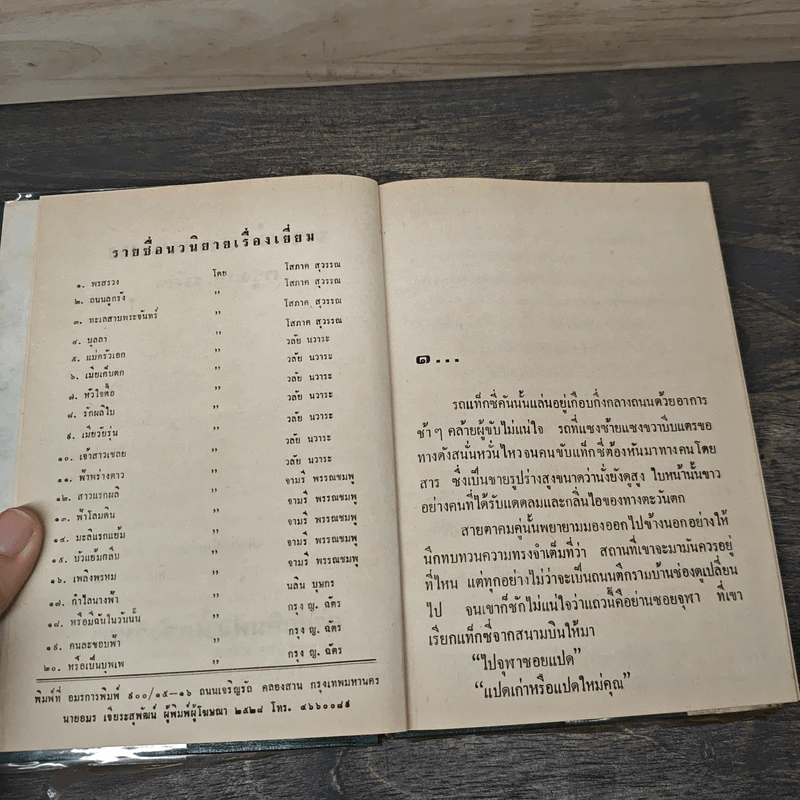 รายชื่อนวนิยายเรื่องเยี่ยม
๑. พรสรวง โดย โสภาค สุวรรณ
๒. ถนนลูกรัง ” โสภาค สุวรรณ
๓. ทะเลสาบพระจันทร์ ” โสภาค สุวรรณ
๔. บุลลา ” โสภาค สุวรรณ
๕. แม่ครัวเอก ” วลัย นวาระ
๖. เมียเก็บตก ” วลัย นวาระ
๗. หัวใจดื้อ ” วลัย นวาระ
๘. รักผลิใบ ” วลัย นวาระ
๙. เมียวัยรุ่น ” วลัย นวาระ
๑๐. เจ้าสาวเชลย ” วลัย นวาระ
๑๑. ฟ้าพร่างดาว ” จามรี พรรณชมพู
๑๒. สาวแรกผลิ ” จามรี พรรณชมพู
๑๓. ฟ้าโลมดิน ” จามรี พรรณชมพู
๑๔. มะลิแรกแย้ม ” จามรี พรรณชมพู
๑๕. บัวแย้มกลีบ ” จามรี พรรณชมพู
๑๖. เพลิงพรหม ” นลิน บุษกร
๑๗. กำไลนางฟ้า ” กรุง ญ. ฉัตร
๑๘. หรือมีฉันในวันนั้น ” กรุง ญ. ฉัตร
๑๙. คนละขอบฟ้า ” กรุง ญ. ฉัตร
๒๐. หรือเป็นบุพเพ ” กรุง ญ. ฉัตร
พิมพ์ที่ อมรการพิมพ์ ๙๐๐/๑๕–๑๖ ถนนเจริญรัถ คลองสาน กรุงเทพมหานคร
นายอมร เจียระสุพัฒน์ ผู้พิมพ์ผู้โฆษณา ๒๕๒๘ โทร. ๔๖๖๐๐๘๙
๑...
รถแท็กซี่คันนั้นแล่นอยู่เกือบกึ่งกลางถนนด้วยอาการ
ช้าๆ คล้ายผู้ขับไม่แน่ใจ รถที่แซงซ้ายแซงขวาบีบแตรขอ
ทางดังสนั่นหวั่นไหวจนคนขับแท็กซี่ต้องหันมาทางคนโดย
สาร ซึ่งเป็นชายรูปร่างสูงขนาดว่านั่งยังดูสูง ใบหน้านั้นขาว
อย่างคนที่ได้รับแดดลมและกลิ่นไอของทางตะวันตก
สายตาคมคู่นั้นพยายามมองออกไปข้างนอกอย่างให้
นึกทบทวนความทรงจำเดิมที่ว่า สถานที่เขาจะมามันควรอยู่
ที่ไหน แต่ทุกอย่างไม่ว่าจะเป็นถนนตึกรามบ้านช่องดูเปลี่ยน
ไป จนเขาก็ชักไม่แน่ใจว่าแถวนี้คือย่านซอยจุฬา ที่เขา
เรียกแท็กซี่จากสนามบินให้มา
“ไปจุฬาซอยแปด”
“แปดเก่าหรือแปดใหม่คุณ”